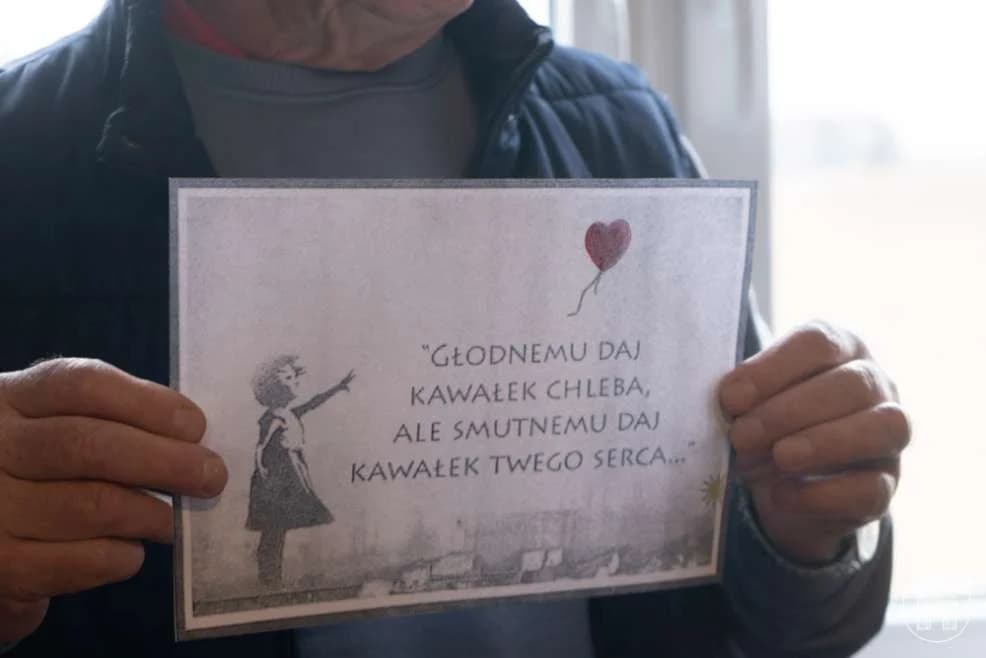 "GŁODNEMU DAJ
KAWAŁEK CHLEBA,
ALE SMUTNEMU DAJ
KAWAŁEK TWEGO SERCA..."